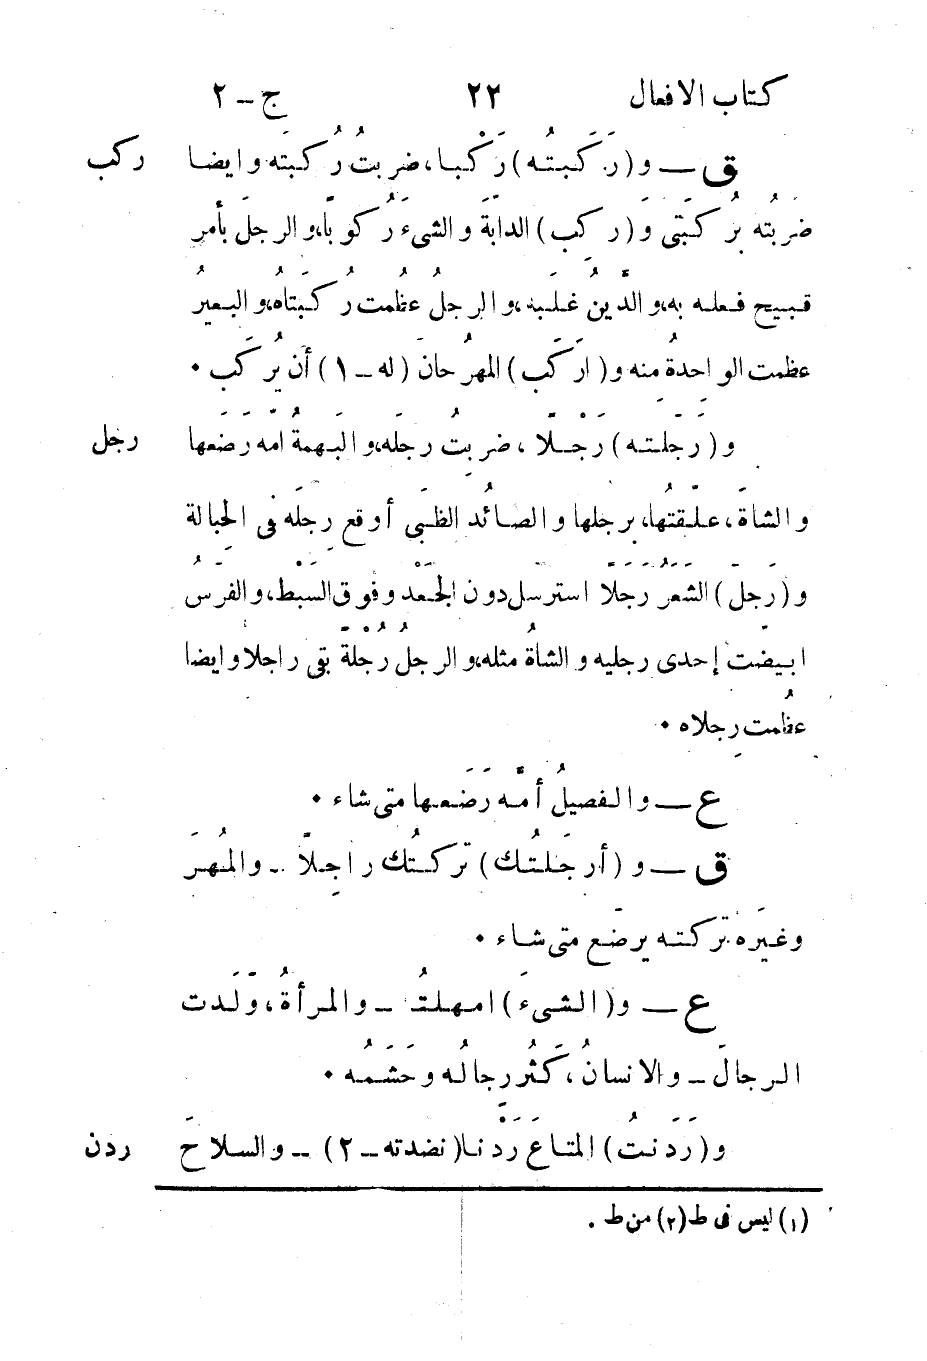 كتاب الافعال ٢٢ ج – ٢
ق — و (رَكَبتُه) رَكْبا، ضربتُ رُكبتَه وايضا ركب
ضربتُه برُكبَتى و (ركِب) الدابّةَ والشىءَ رُكوبًا، والرجلَ بأمرٍ
قبيح فعله به، والدَّينُ غلَبه، والرجلُ عظُمت رُكبَتاه، والبعيرُ
عظمت الواحدةُ منه و (اركَبَ) المهرُ حان (له – ١) أن يُركَب •
و (رَجَلته) رَجْلًا، ضربتُ رجلَه، والبَهمةُ امَّه رَضَعها رجل
والشاةَ، علّقتُها، برجلها والصائد الظبَى أوقع رِجلَه فى الحِبالة
و (رَجِل) الشعَرُ رَجَلًا استرسل دون الجَعْد وفوق السَبْط، والفَرسُ
ابيضّت إحدى رجليه والشاةُ مثله، والرجلُ رُجْلةً بقى راجلا وايضا
عظُمت رِجلاه •
ع — والفصيلُ أمَّه رَضَعها متى شاء •
ق — و (أرجَلتُك) تركتُك راجِلًا – والمُهرَ
وغيرَه تركته يرضَع متى شاء •
ع — و (الشىءَ) امهلتُ – والمرأةُ، ولَّدت
الرجالَ – والانسانُ، كَثُر رجالُه وحَشَمُه •
و (رَدَنتُ) المتاعَ رَدْنا (نضدته – ٢) – والسلاحَ ردن
(١) ليس فى ط (٢) من ط .